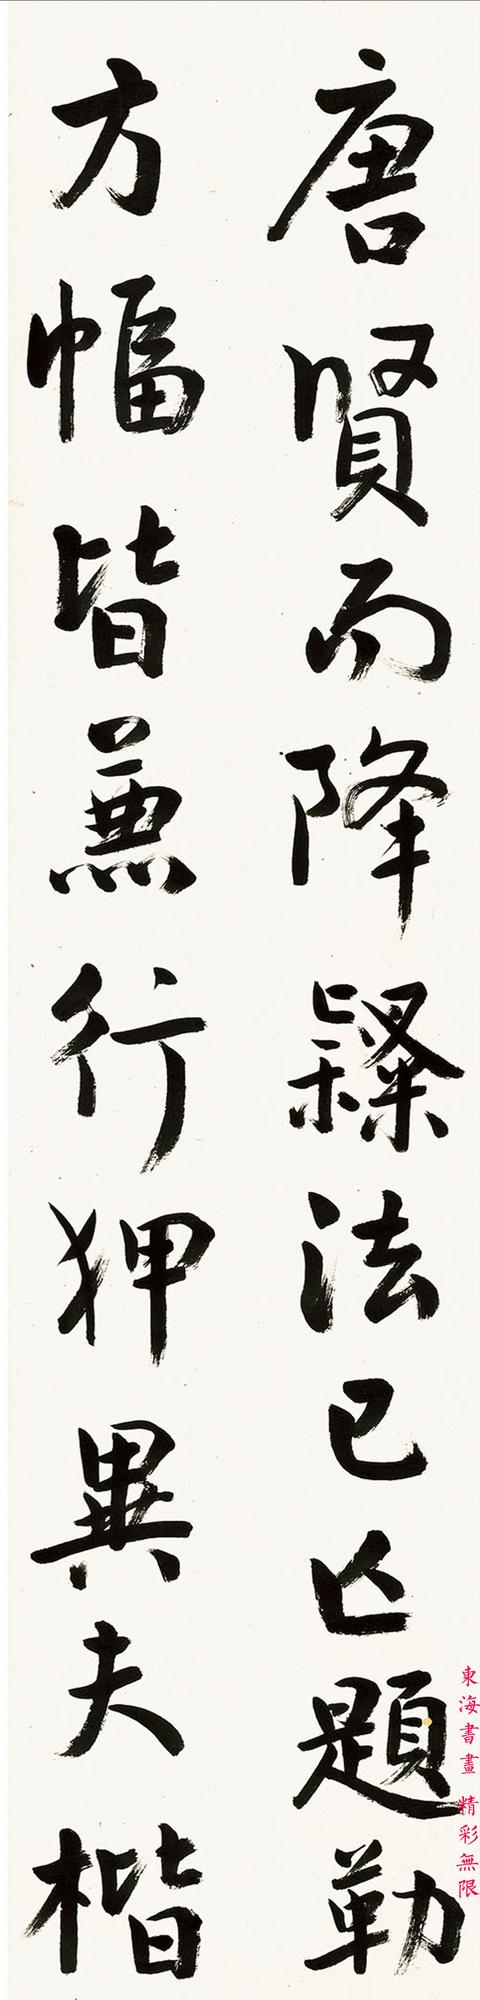 唐賢而降𨽻法已亾題勒
方幅皆兼行狎異夫楷
東海書畫 精彩無限